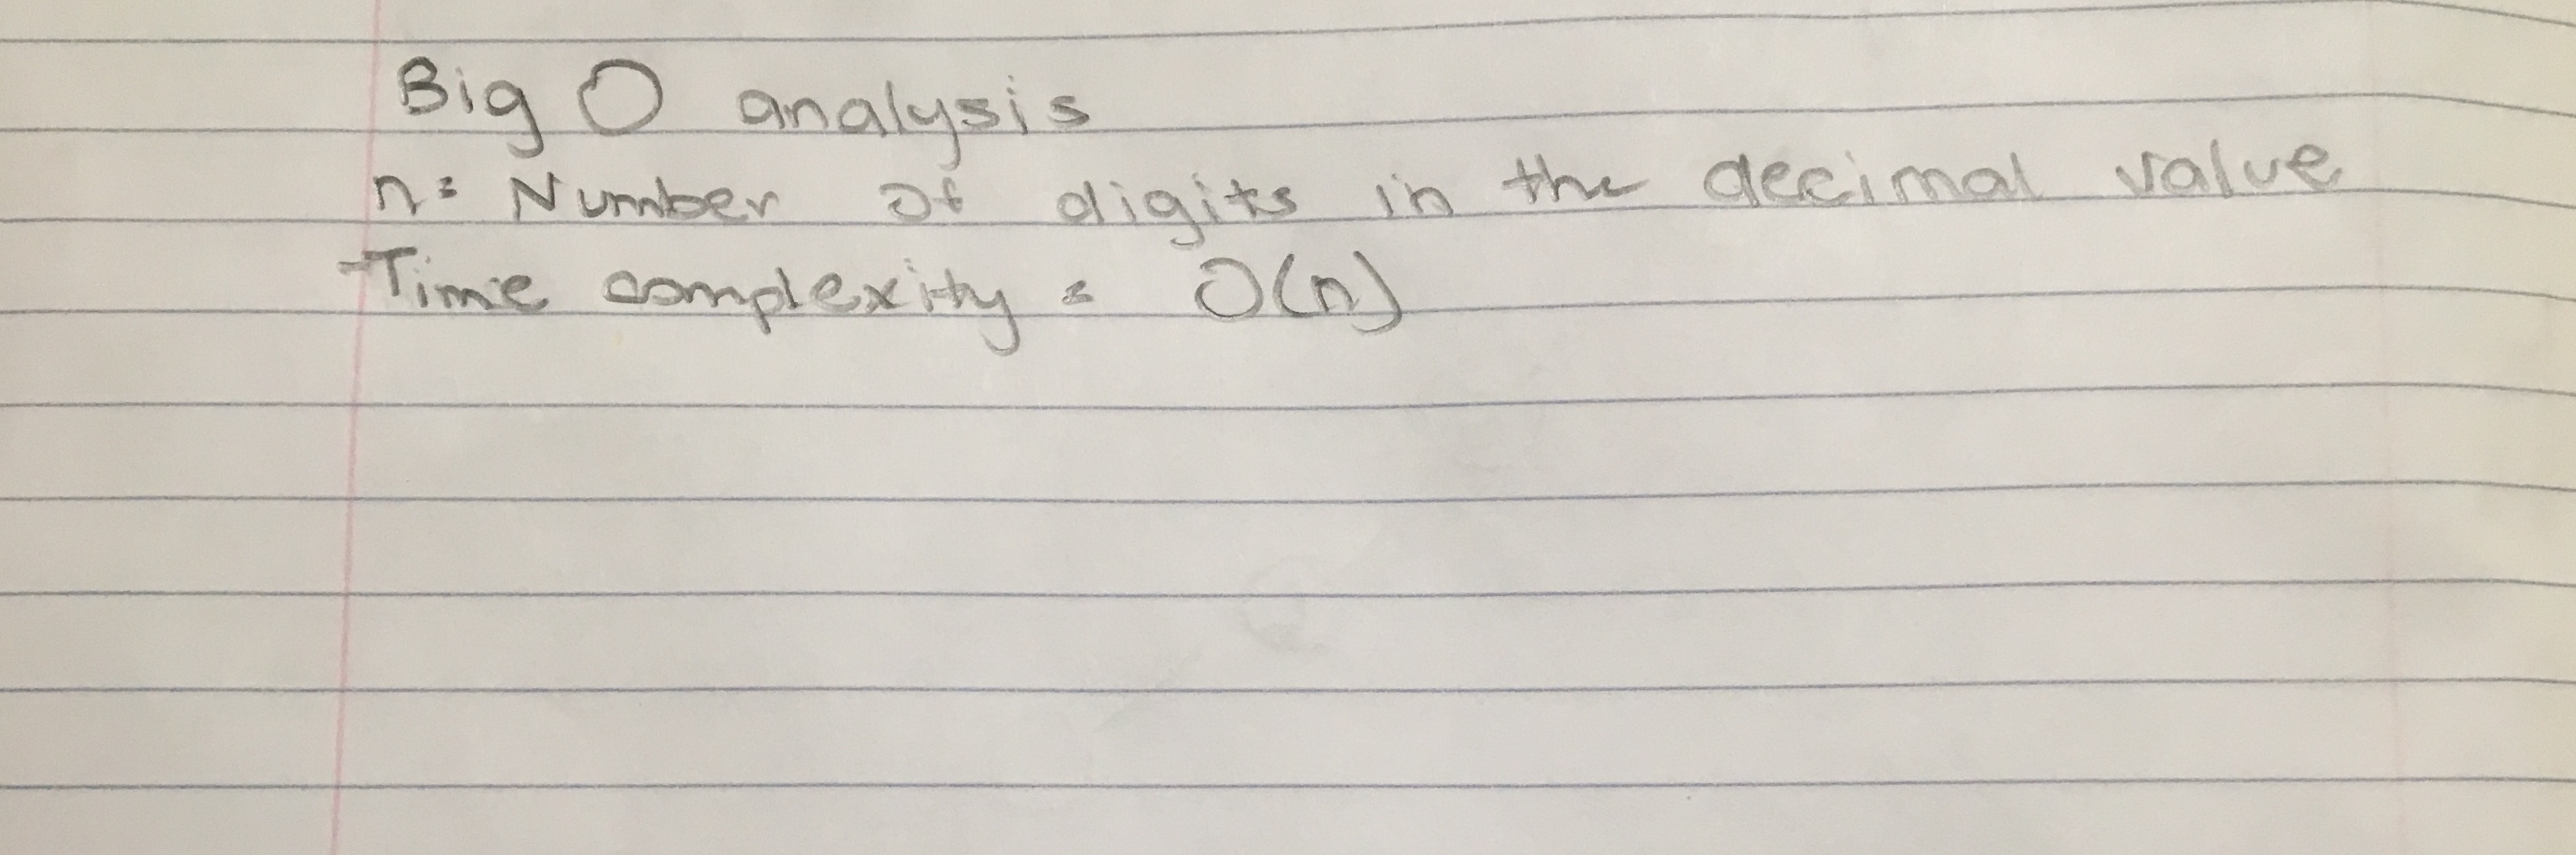 Big O analysis
n = Number of digits in the decimal value
Time complexity = O(n)